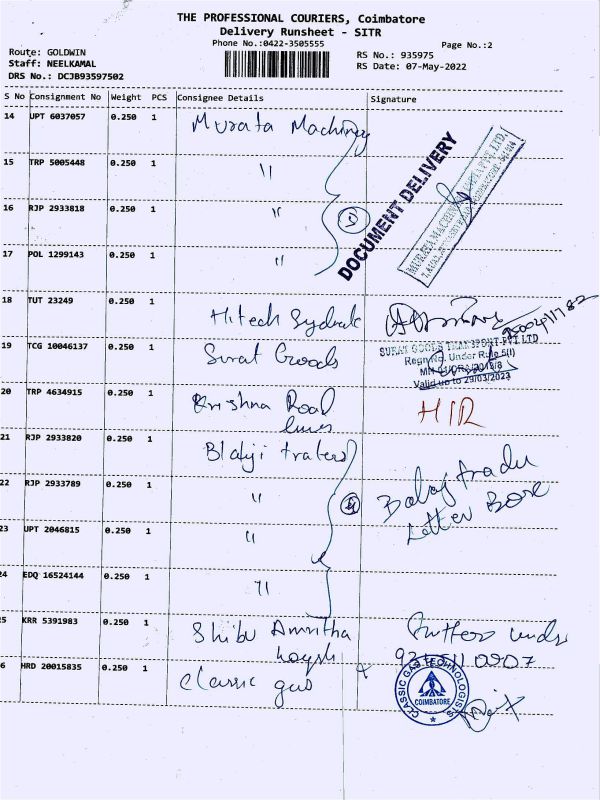 THE PROFESSIONAL COURIERS, Coimbatore
Delivery Runsheet - SITR
Phone No.:0422-3505555
Page No.:2
Route: GOLDWIN
Staff: NEELKAMAL
DRS No.: DCJB93597502
RS No.: 935975
RS Date: 07-May-2022
S No Consignment No Weight PCS Consignee Details Signature
14 UPT 6037057 0.250 1 Murata Machinery
15 TRP 5005448 0.250 1 "
16 RJP 2933818 0.250 1 "
17 POL 1299143 0.250 1 "
DOCUMENT DELIVERY
18 TUT 23249 0.250 1 Hitech
19 TCG 10046137 0.250 1 Surat Goods
SURAT GOODS TRANSPORT PVT LTD
Regn No. Under Rule 5(I)
Valid up to 29/03/2023
20 TRP 4634915 0.250 1 Krishna Road
lines
HIR
21 RJP 2933820 0.250 1 Blaji traters
22 RJP 2933789 0.250 1 "
Balaj tradu
Letter Box
23 UPT 2046815 0.250 1 "
24 EDQ 16524144 0.250 1 "
5 KRR 5391983 0.250 1 Shibu Amritha
6 HRD 20015835 0.250 1 Classic gas
CLASSIC GAS TECHNOLOGISTS
COIMBATORE